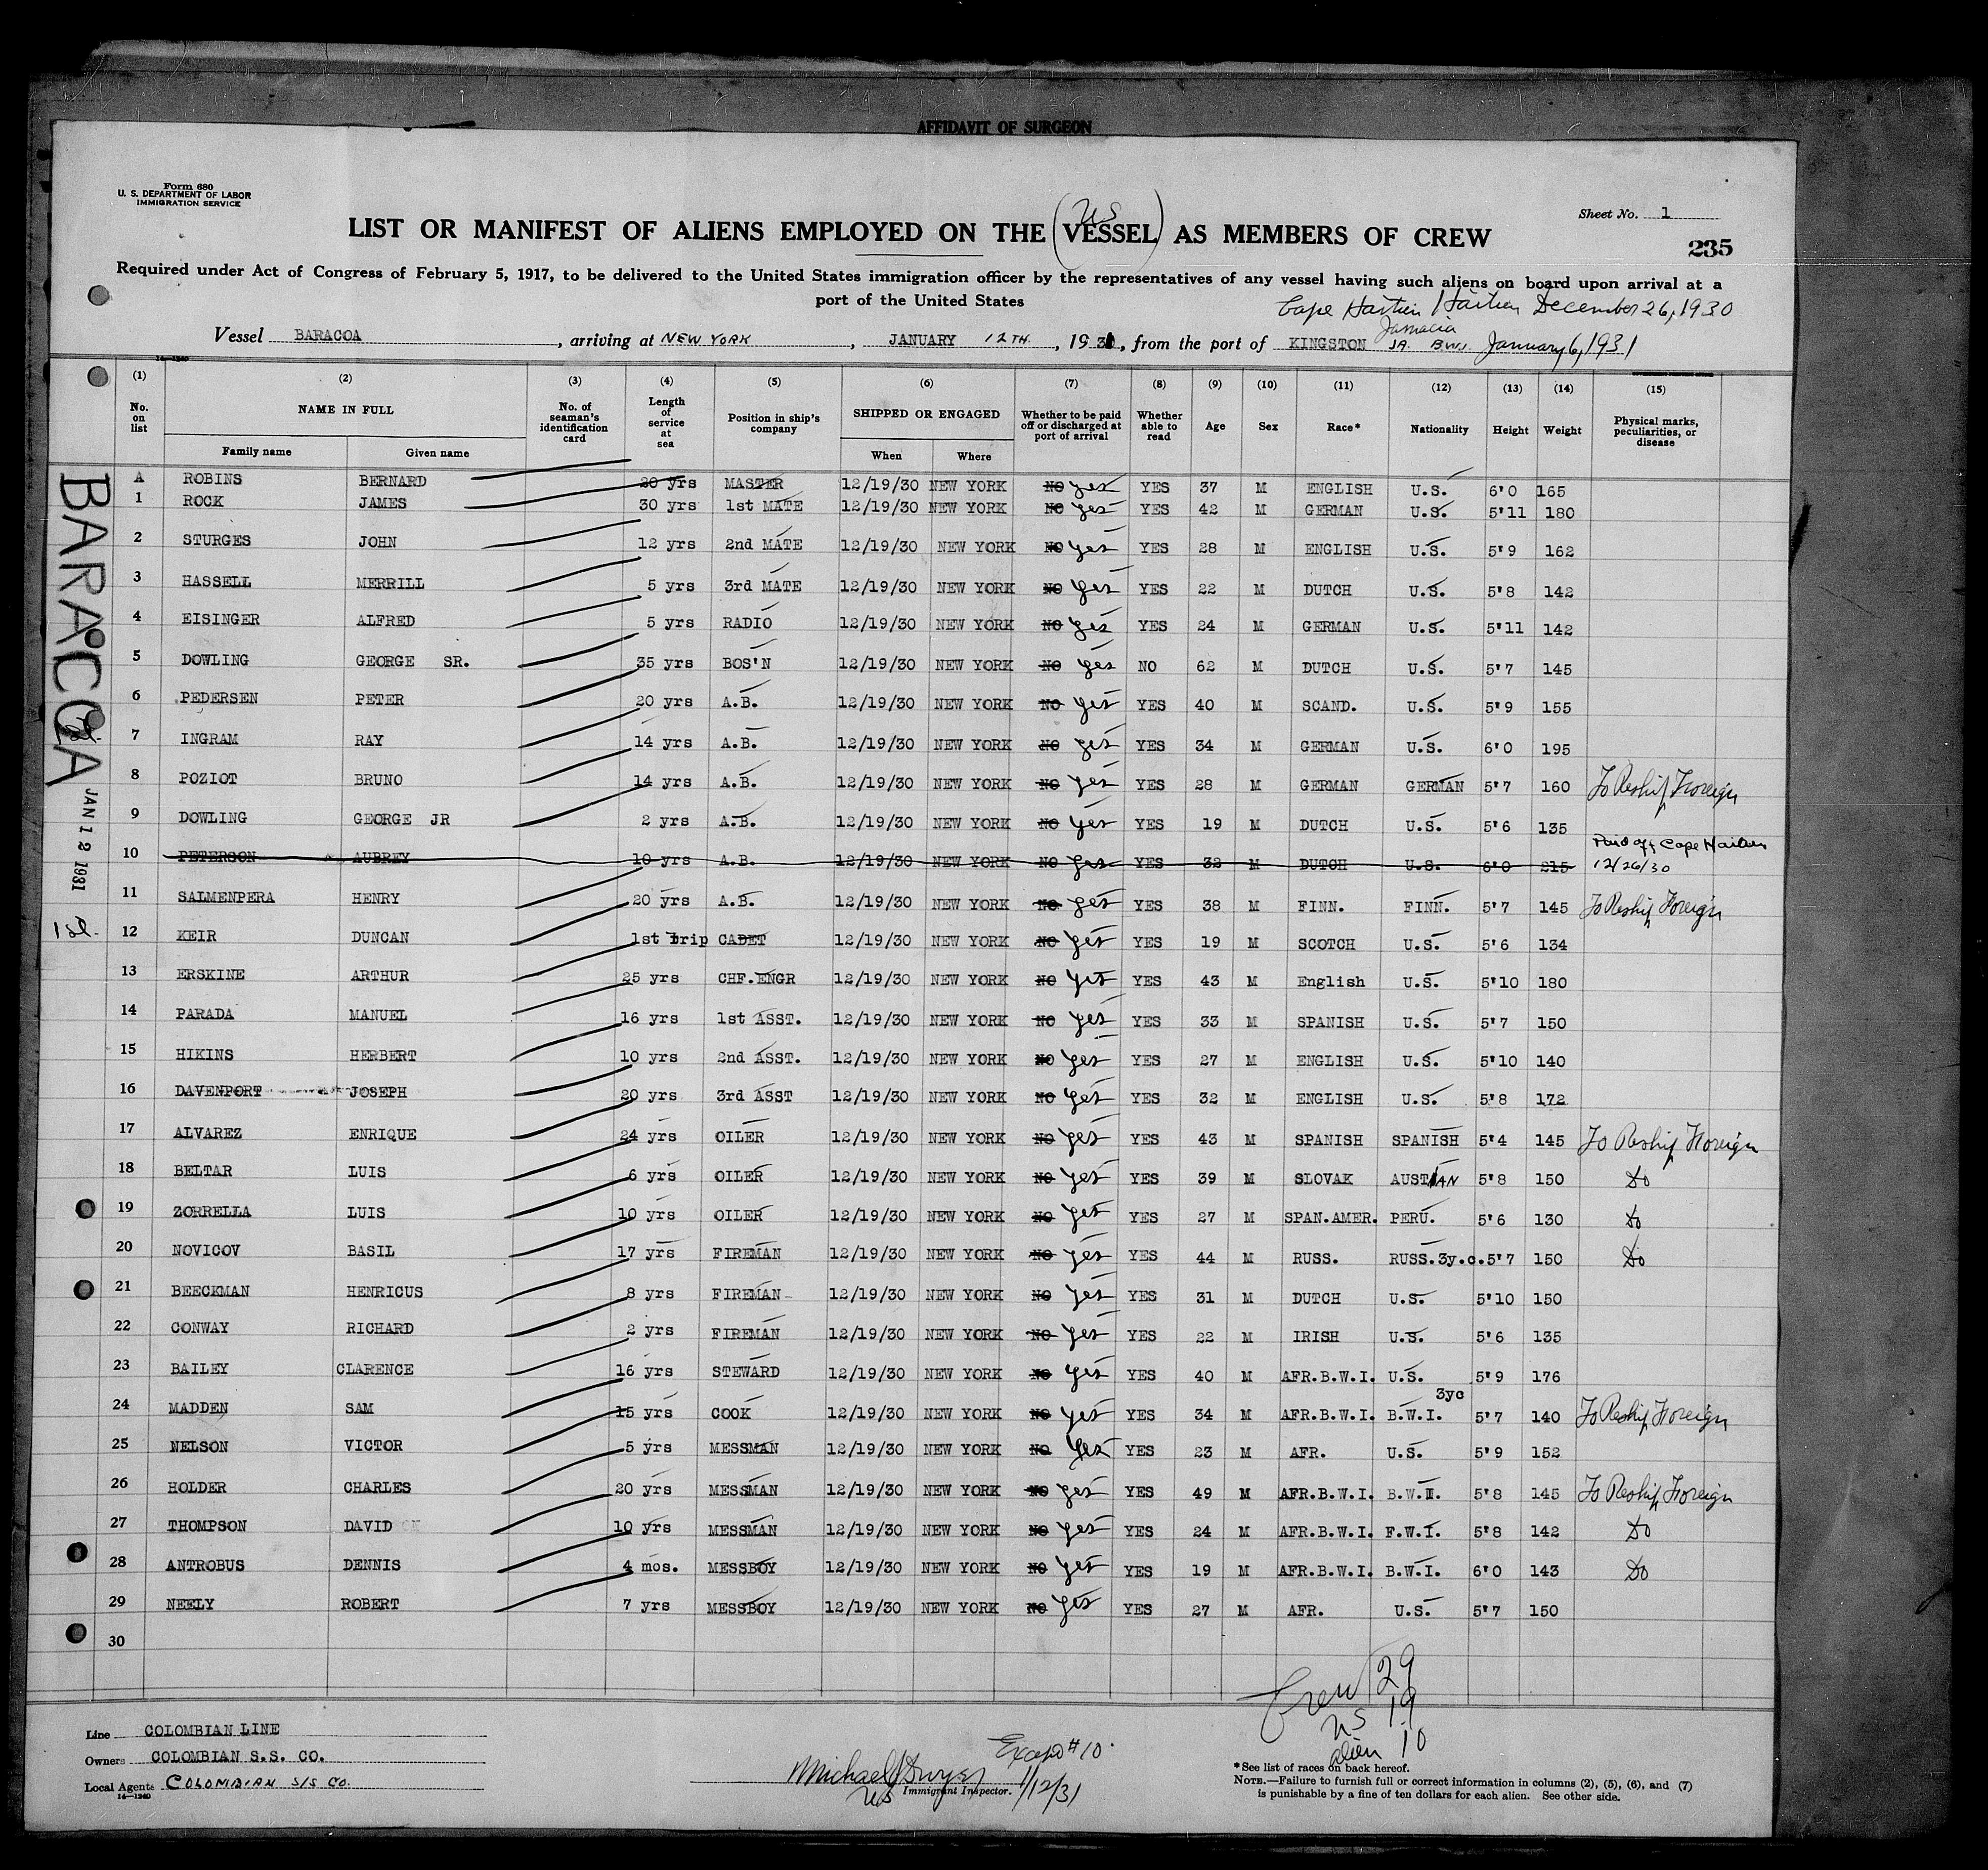 AFFIDAVIT OF SURGEON
Form 680
U. S. DEPARTMENT OF LABOR
IMMIGRATION SERVICE
Sheet No. 1
US
LIST OR MANIFEST OF ALIENS EMPLOYED ON THE (VESSEL) AS MEMBERS OF CREW
235
Required under Act of Congress of February 5, 1917, to be delivered to the United States immigration officer by the representatives of any vessel having such aliens on board upon arrival at a
port of the United States
Cape Haitien Haitien December 26, 1930
Jamacia
Vessel BARACOA, arriving at NEW YORK, JANUARY 12TH, 1931, from the port of KINGSTON JA. B.W.I. January 6, 1931
14-1240
(1) (2) (3) (4) (5) (6) (7) (8) (9) (10) (11) (12) (13) (14) (15)
No. on list NAME IN FULL No. of seaman's identification card Length of service at sea Position in ship's company SHIPPED OR ENGAGED Whether to be paid off or discharged at port of arrival Whether able to read Age Sex Race* Nationality Height Weight Physical marks, peculiarities, or disease
Family name Given name When Where
A ROBINS BERNARD 20 yrs MASTER 12/19/30 NEW YORK NO yes YES 37 M ENGLISH U.S. 6'0 165
1 ROCK JAMES 30 yrs 1st MATE 12/19/30 NEW YORK NO yes YES 42 M GERMAN U.S. 5'11 180
2 STURGES JOHN 12 yrs 2nd MATE 12/19/30 NEW YORK NO yes YES 28 M ENGLISH U.S. 5'9 162
3 HASSELL MERRILL 5 yrs 3rd MATE 12/19/30 NEW YORK NO yes YES 22 M DUTCH U.S. 5'8 142
4 EISINGER ALFRED 5 yrs RADIO 12/19/30 NEW YORK NO yes YES 24 M GERMAN U.S. 5'11 142
5 DOWLING GEORGE SR. 35 yrs BOS'N 12/19/30 NEW YORK NO yes NO 62 M DUTCH U.S. 5'7 145
6 PEDERSEN PETER 20 yrs A.B. 12/19/30 NEW YORK NO yes YES 40 M SCAND. U.S. 5'9 155
7 INGRAM RAY 14 yrs A.B. 12/19/30 NEW YORK NO yes YES 34 M GERMAN U.S. 6'0 195
8 POZIOT BRUNO 14 yrs A.B. 12/19/30 NEW YORK NO yes YES 28 M GERMAN GERMAN 5'7 160 To Reship Foreign
9 DOWLING GEORGE JR 2 yrs A.B. 12/19/30 NEW YORK NO yes YES 19 M DUTCH U.S. 5'6 135
10 PETERSON AUBREY 10 yrs A.B. 12/19/30 NEW YORK NO yes YES 32 M DUTCH U.S. 6'0 215 Paid off Cape Haitien 12/26/30
11 SALMENPERA HENRY 20 yrs A.B. 12/19/30 NEW YORK NO yes YES 38 M FINN. FINN. 5'7 145 To Reship Foreign
12 KEIR DUNCAN 1st trip CADET 12/19/30 NEW YORK NO yes YES 19 M SCOTCH U.S. 5'6 134
13 ERSKINE ARTHUR 25 yrs CHF.ENGR 12/19/30 NEW YORK NO yes YES 43 M English U.S. 5'10 180
14 PARADA MANUEL 16 yrs 1st ASST. 12/19/30 NEW YORK NO yes YES 33 M SPANISH U.S. 5'7 150
15 HIKINS HERBERT 10 yrs 2nd ASST. 12/19/30 NEW YORK NO yes YES 27 M ENGLISH U.S. 5'10 140
16 DAVENPORT JOSEPH 20 yrs 3rd ASST 12/19/30 NEW YORK NO yes YES 32 M ENGLISH U.S. 5'8 172
17 ALVAREZ ENRIQUE 24 yrs OILER 12/19/30 NEW YORK NO yes YES 43 M SPANISH SPANISH 5'4 145 To Reship Foreign
18 BELTAR LUIS 6 yrs OILER 12/19/30 NEW YORK NO yes YES 39 M SLOVAK AUSTIAN 5'8 150 Do
19 ZORRELLA LUIS 10 yrs OILER 12/19/30 NEW YORK NO yes YES 27 M SPAN.AMER. PERU. 5'6 130 Do
20 NOVICOV BASIL 17 yrs FIREMAN 12/19/30 NEW YORK NO yes YES 44 M RUSS. RUSS.3y.c. 5'7 150 Do
21 BEECKMAN HENRICUS 8 yrs FIREMAN 12/19/30 NEW YORK NO yes YES 31 M DUTCH U.S. 5'10 150
22 CONWAY RICHARD 2 yrs FIREMAN 12/19/30 NEW YORK NO yes YES 22 M IRISH U.S. 5'6 135
23 BAILEY CLARENCE 16 yrs STEWARD 12/19/30 NEW YORK NO yes YES 40 M AFR.B.W.I. U.S. 5'9 176
24 MADDEN SAM 15 yrs COOK 12/19/30 NEW YORK NO yes YES 34 M AFR.B.W.I. B.W.I. 3yc 5'7 140 To Reship Foreign
25 NELSON VICTOR 5 yrs MESSMAN 12/19/30 NEW YORK NO yes YES 23 M AFR. U.S. 5'9 152
26 HOLDER CHARLES 20 yrs MESSMAN 12/19/30 NEW YORK NO yes YES 49 M AFR.B.W.I. B.W.I. 5'8 145 To Reship Foreign
27 THOMPSON DAVID 10 yrs MESSMAN 12/19/30 NEW YORK NO yes YES 24 M AFR.B.W.I. F.W.I. 5'8 142 Do
28 ANTROBUS DENNIS 4 mos. MESSBOY 12/19/30 NEW YORK NO yes YES 19 M AFR.B.W.I. B.W.I. 6'0 143 Do
29 NEELY ROBERT 7 yrs MESSBOY 12/19/30 NEW YORK NO yes YES 27 M AFR. U.S. 5'7 150
30
BARACOA
JAN 12 1931
Crew 29
US 19
alien 10
Line COLOMBIAN LINE
Owners COLOMBIAN S.S. CO.
Local Agents COLOMBIAN S/S CO.
14-1240
Except #10.
Michael J Dwyer 1/12/31
US Immigrant Inspector.
*See list of races on back hereof.
NOTE.—Failure to furnish full or correct information in columns (2), (5), (6), and (7)
is punishable by a fine of ten dollars for each alien. See other side.